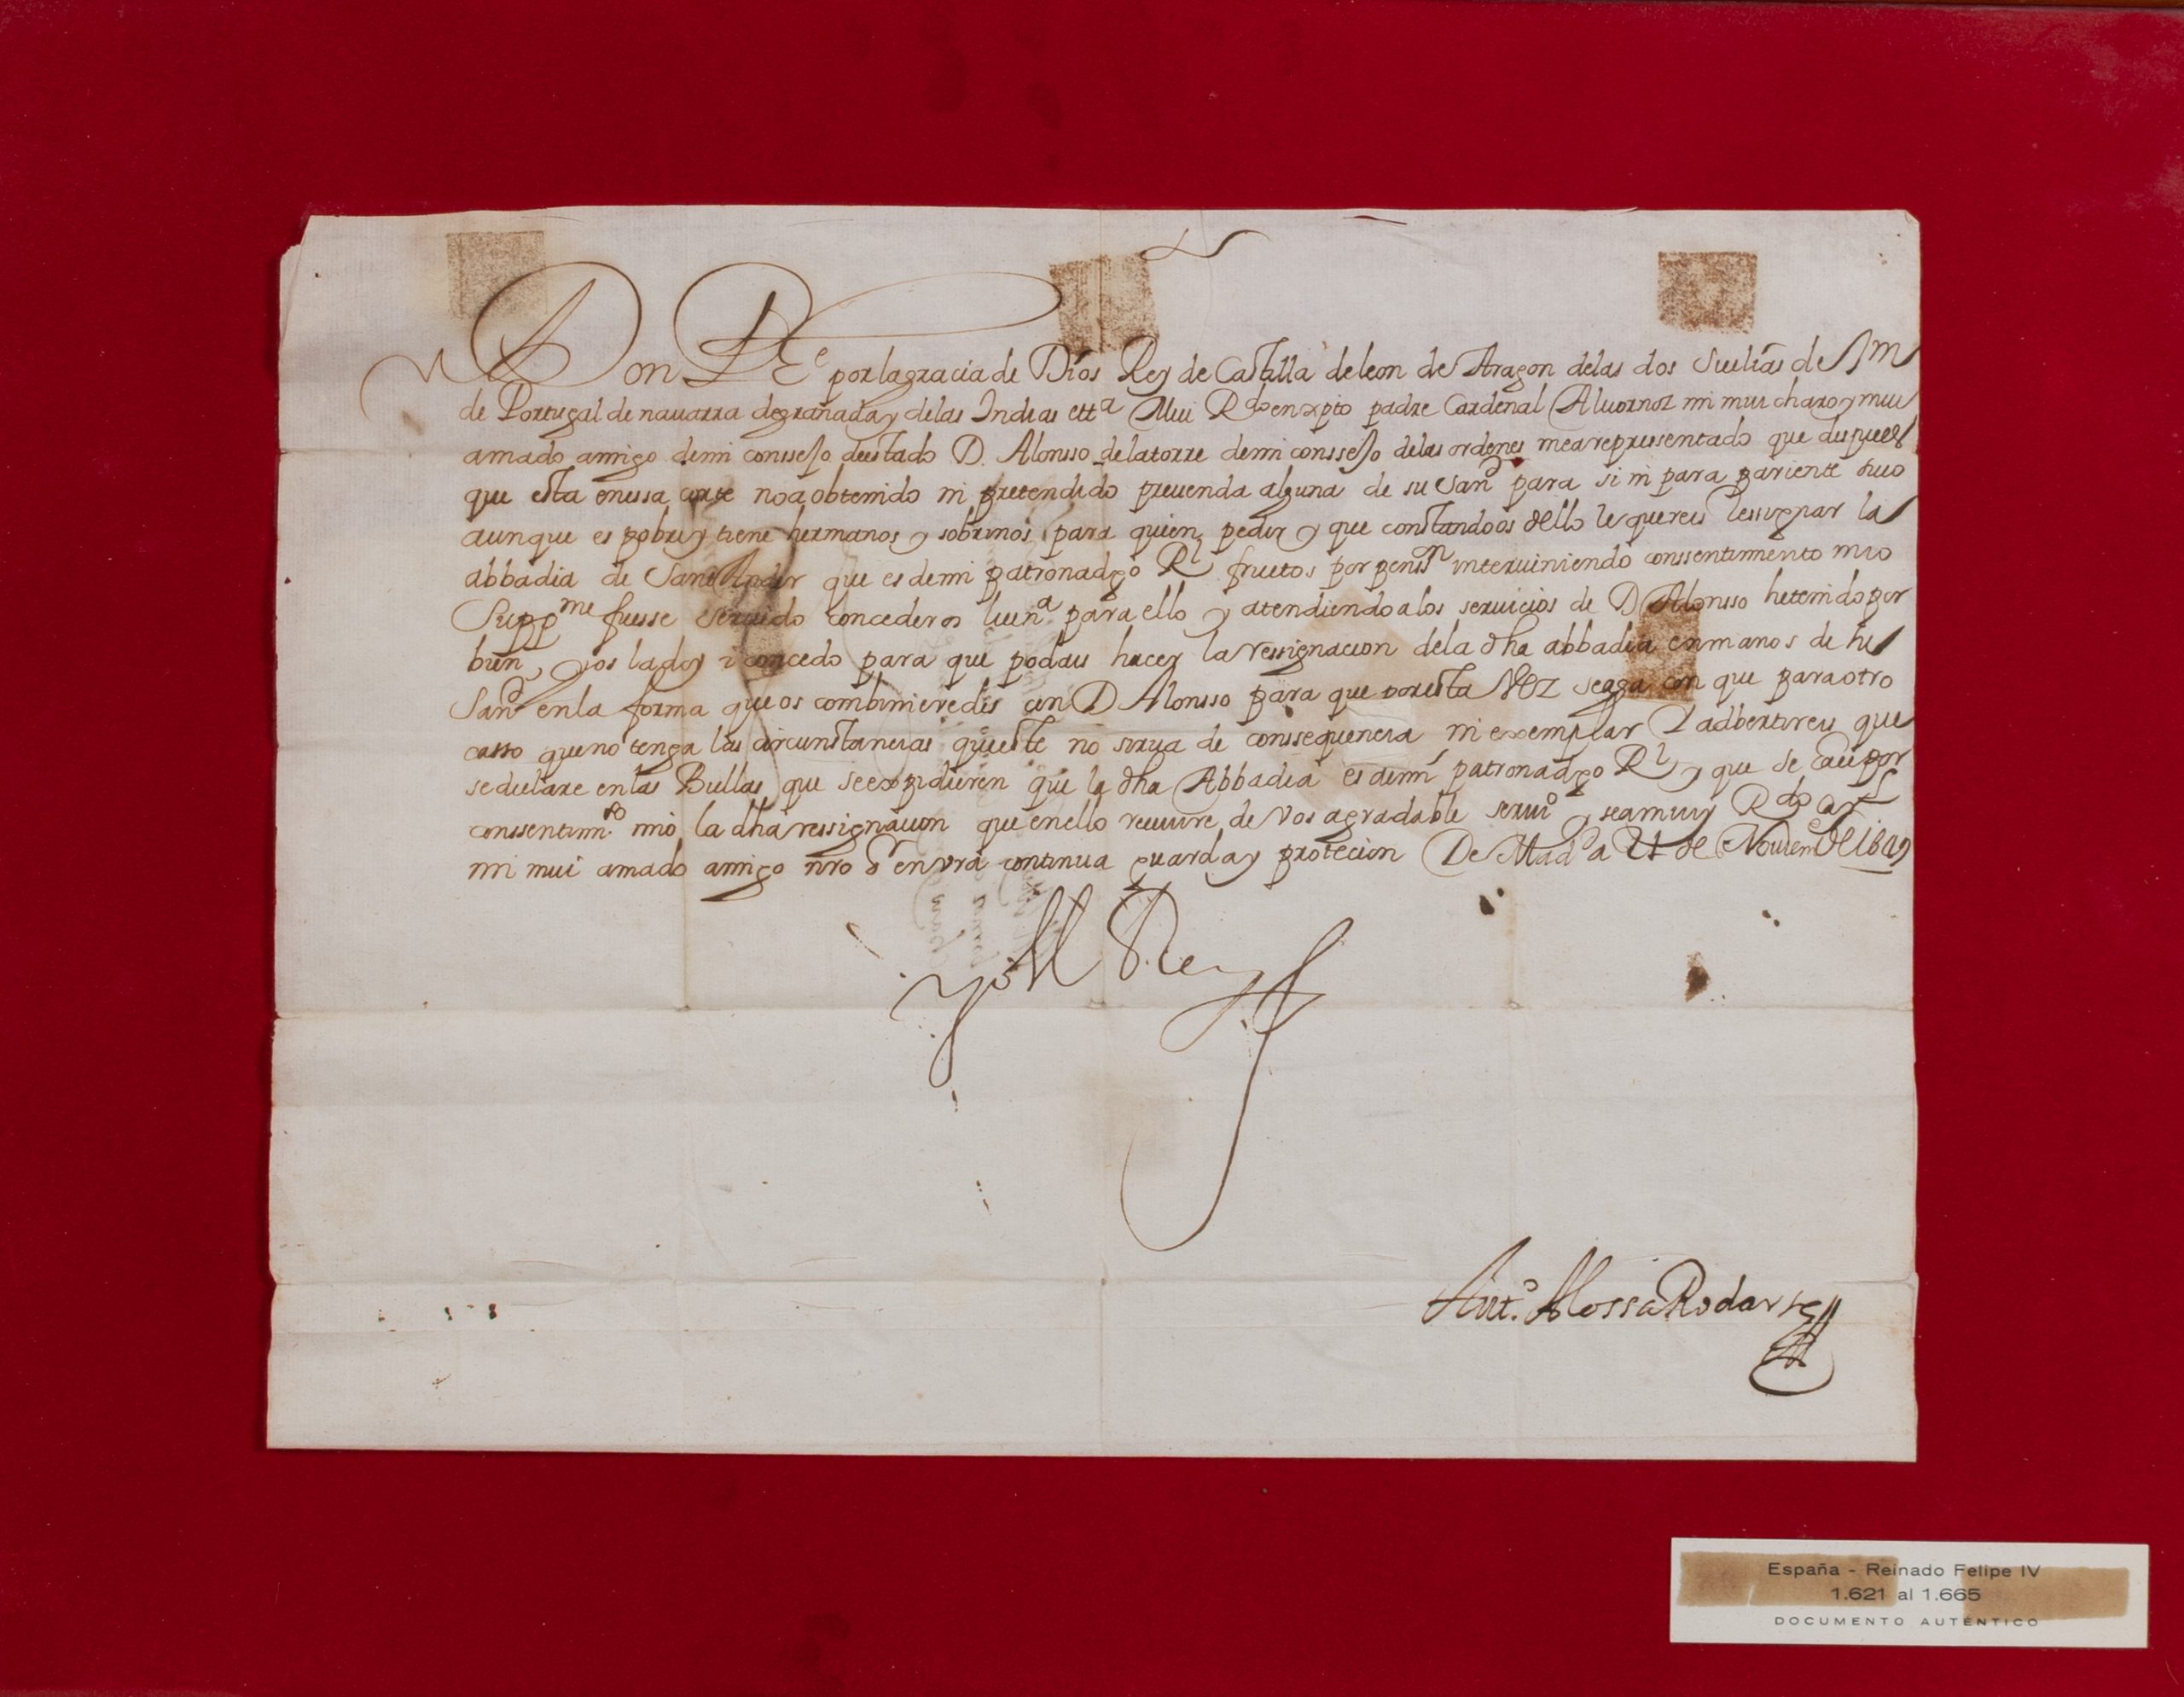 Don Phe por la gracia de Dios Rey de Castilla de leon de Aragon de las dos Sicilias de Jrm
de Portugal de nauarra de granada y de las Indias etta Mui Rdo en xpto padre Cardenal Aluornoz mi mui charo y mui
amado amigo de mi conssejo de estado D. Alonsso de la torre de mi conssejo de las ordenes me a representado que despues
que esta en essa corte no a obtenido ni pretendido preuenda alguna de su Sand para si ni para pariente suio
aunque es pobre y tiene hermanos y sobrinos para quien pedir y que constandoos dello le quereis ressignar la
abbadia de Sant Ander que es de mi patronadgo Rl fructos por penssn interuiniendo conssentimiento mio
Suppme fuesse seruido concederos licena para ello y atendiendo a los seruicios de D Alonsso he tenido por
bien y os la doy i concedo para que podais hacer la ressignacion de la dha abbadia en manos de
Sand en la forma que os combinieredis con D Alonsso para que por esta Vez se aga con que para otro
casso que no tenga las circunstancias que este no sirua de conssequencia ni exemplar I adbertireis que
se declare en las Bullas que se expidieren que la dha Abbadia es de mi patronadgo Rl y que se por
conssentimto mio la dha ressignacion que en ello reciuire de Vos agradable seruio y sea mui Rdo
mi mui amado amigo nro Sr en vra continua guarda y protecion De Madd a 21 de Nouiem de 1649
Yo el Rey
Anto. Alossa Rodarte
España - Reinado Felipe IV
1.621 al 1.665
DOCUMENTO AUTÉNTICO